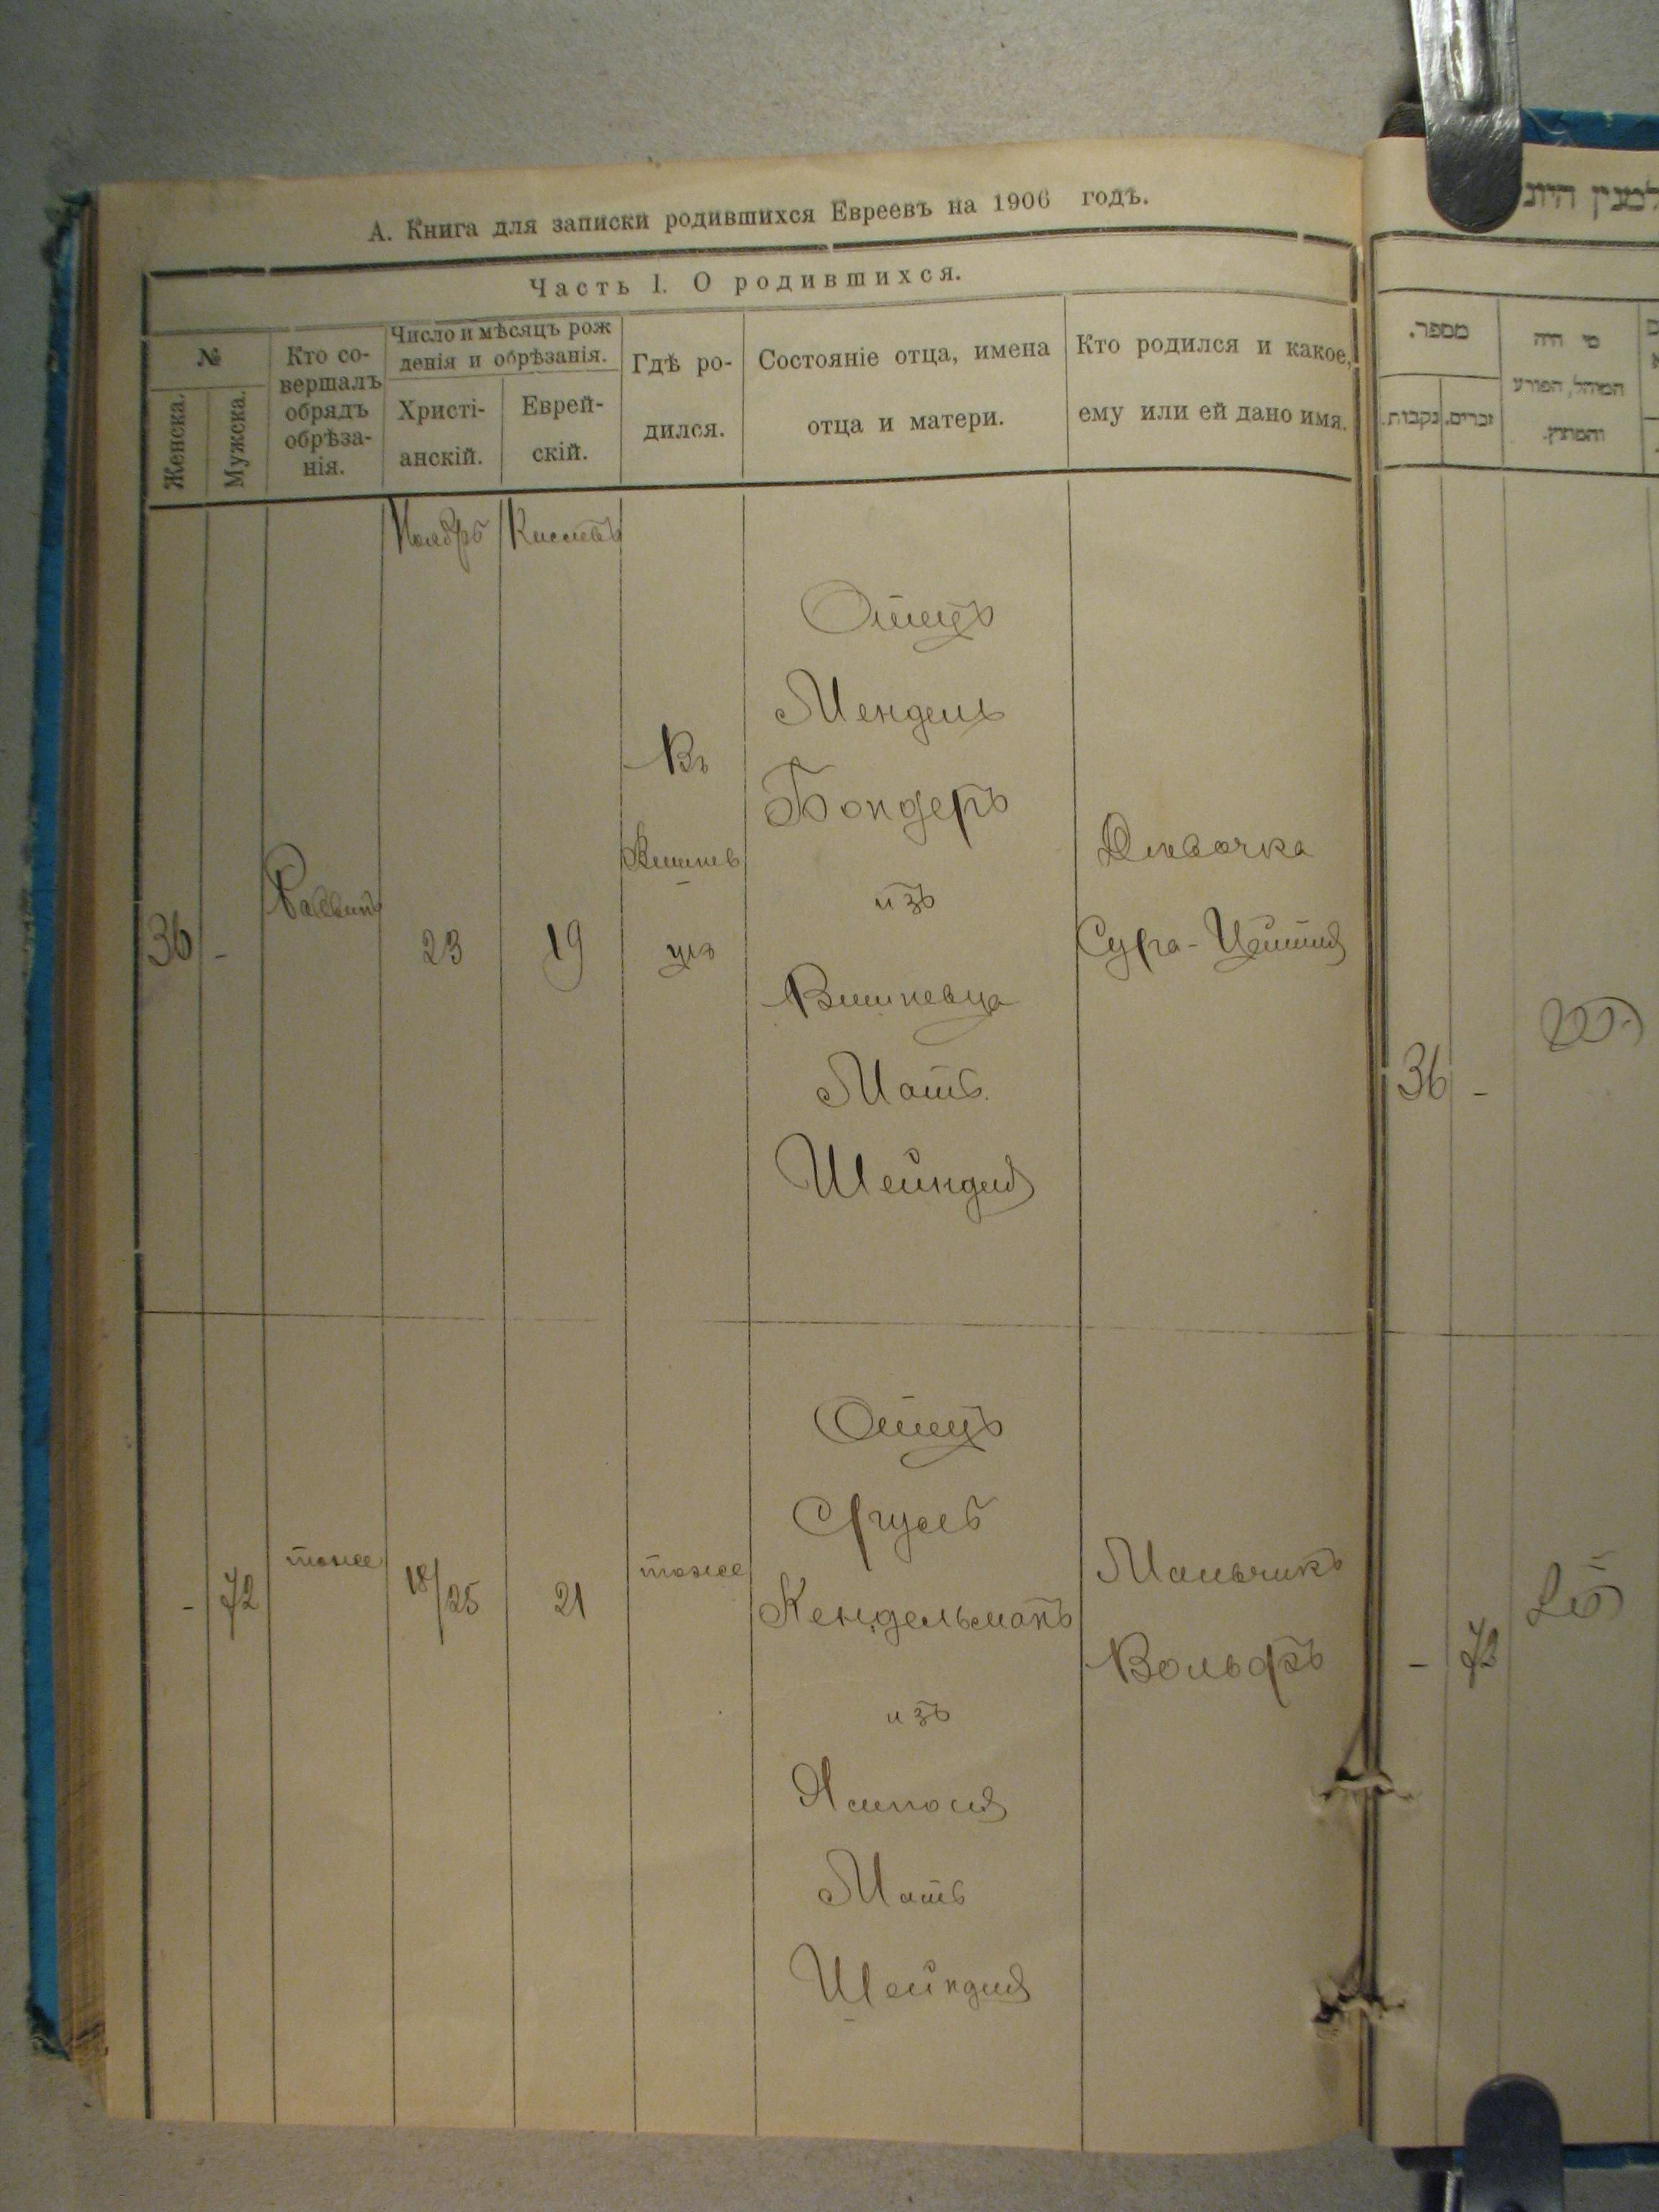 А. Книга для записки родившихся Евреевъ на 1906 годъ.
Часть I. О родившихся.
№
Женска.
Мужска.
Кто со-
вершалъ
обрядъ
обрѣза-
нія.
Число и мѣсяцъ рож
денія и обрѣзанія.
Христі-
анскій.
Еврей-
скій.
Гдѣ ро-
дился.
Состояніе отца, имена
отца и матери.
Кто родился и какое,
ему или ей дано имя.
Ноябрь
Кислевъ
36
-
Раввинъ
23
19
Въ
Вишнев
цѣ
Отецъ
Мендель
Бондеръ
изъ
Вишневца
Мать
Шейндля
Дѣвочка
Сура-
-
72
тоже
18/25
21
тоже
Отецъ
Сруль
Кендельманъ
изъ
Ямполя
Мать
Шейндля
Мальчикъ
Вольфъ
מספר.
זכרים.
נקבות.
מי היה
המוהל, הפורע
והמוצץ.
36
-
-
72